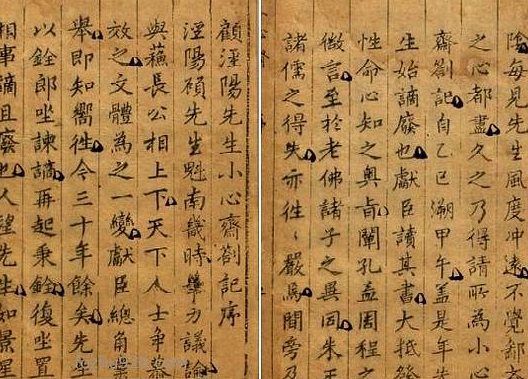 顧涇陽先生小心齋劄記序
涇陽碩先生魁南畿時舉力議論
與蘇長公相上下天下人士爭慕
效之文體為之一變獻臣總角業
舉即知嚮徃今三十年餘矣先生
以銓郎坐諫謫再起秉銓復坐置
相事謫且廢也人望先生如景星
陰每見先生風度冲遠不覺鄙
之心都盡久之乃得請所為小心
齋劄記自乙巳溯甲午盖是年先
生始謫廢也獻臣讀其書大抵發
性命心知之奧旨闡孔孟周程之
微言至於老佛諸子之異同朱王
諸儒之得失亦徃〻嚴焉間旁及